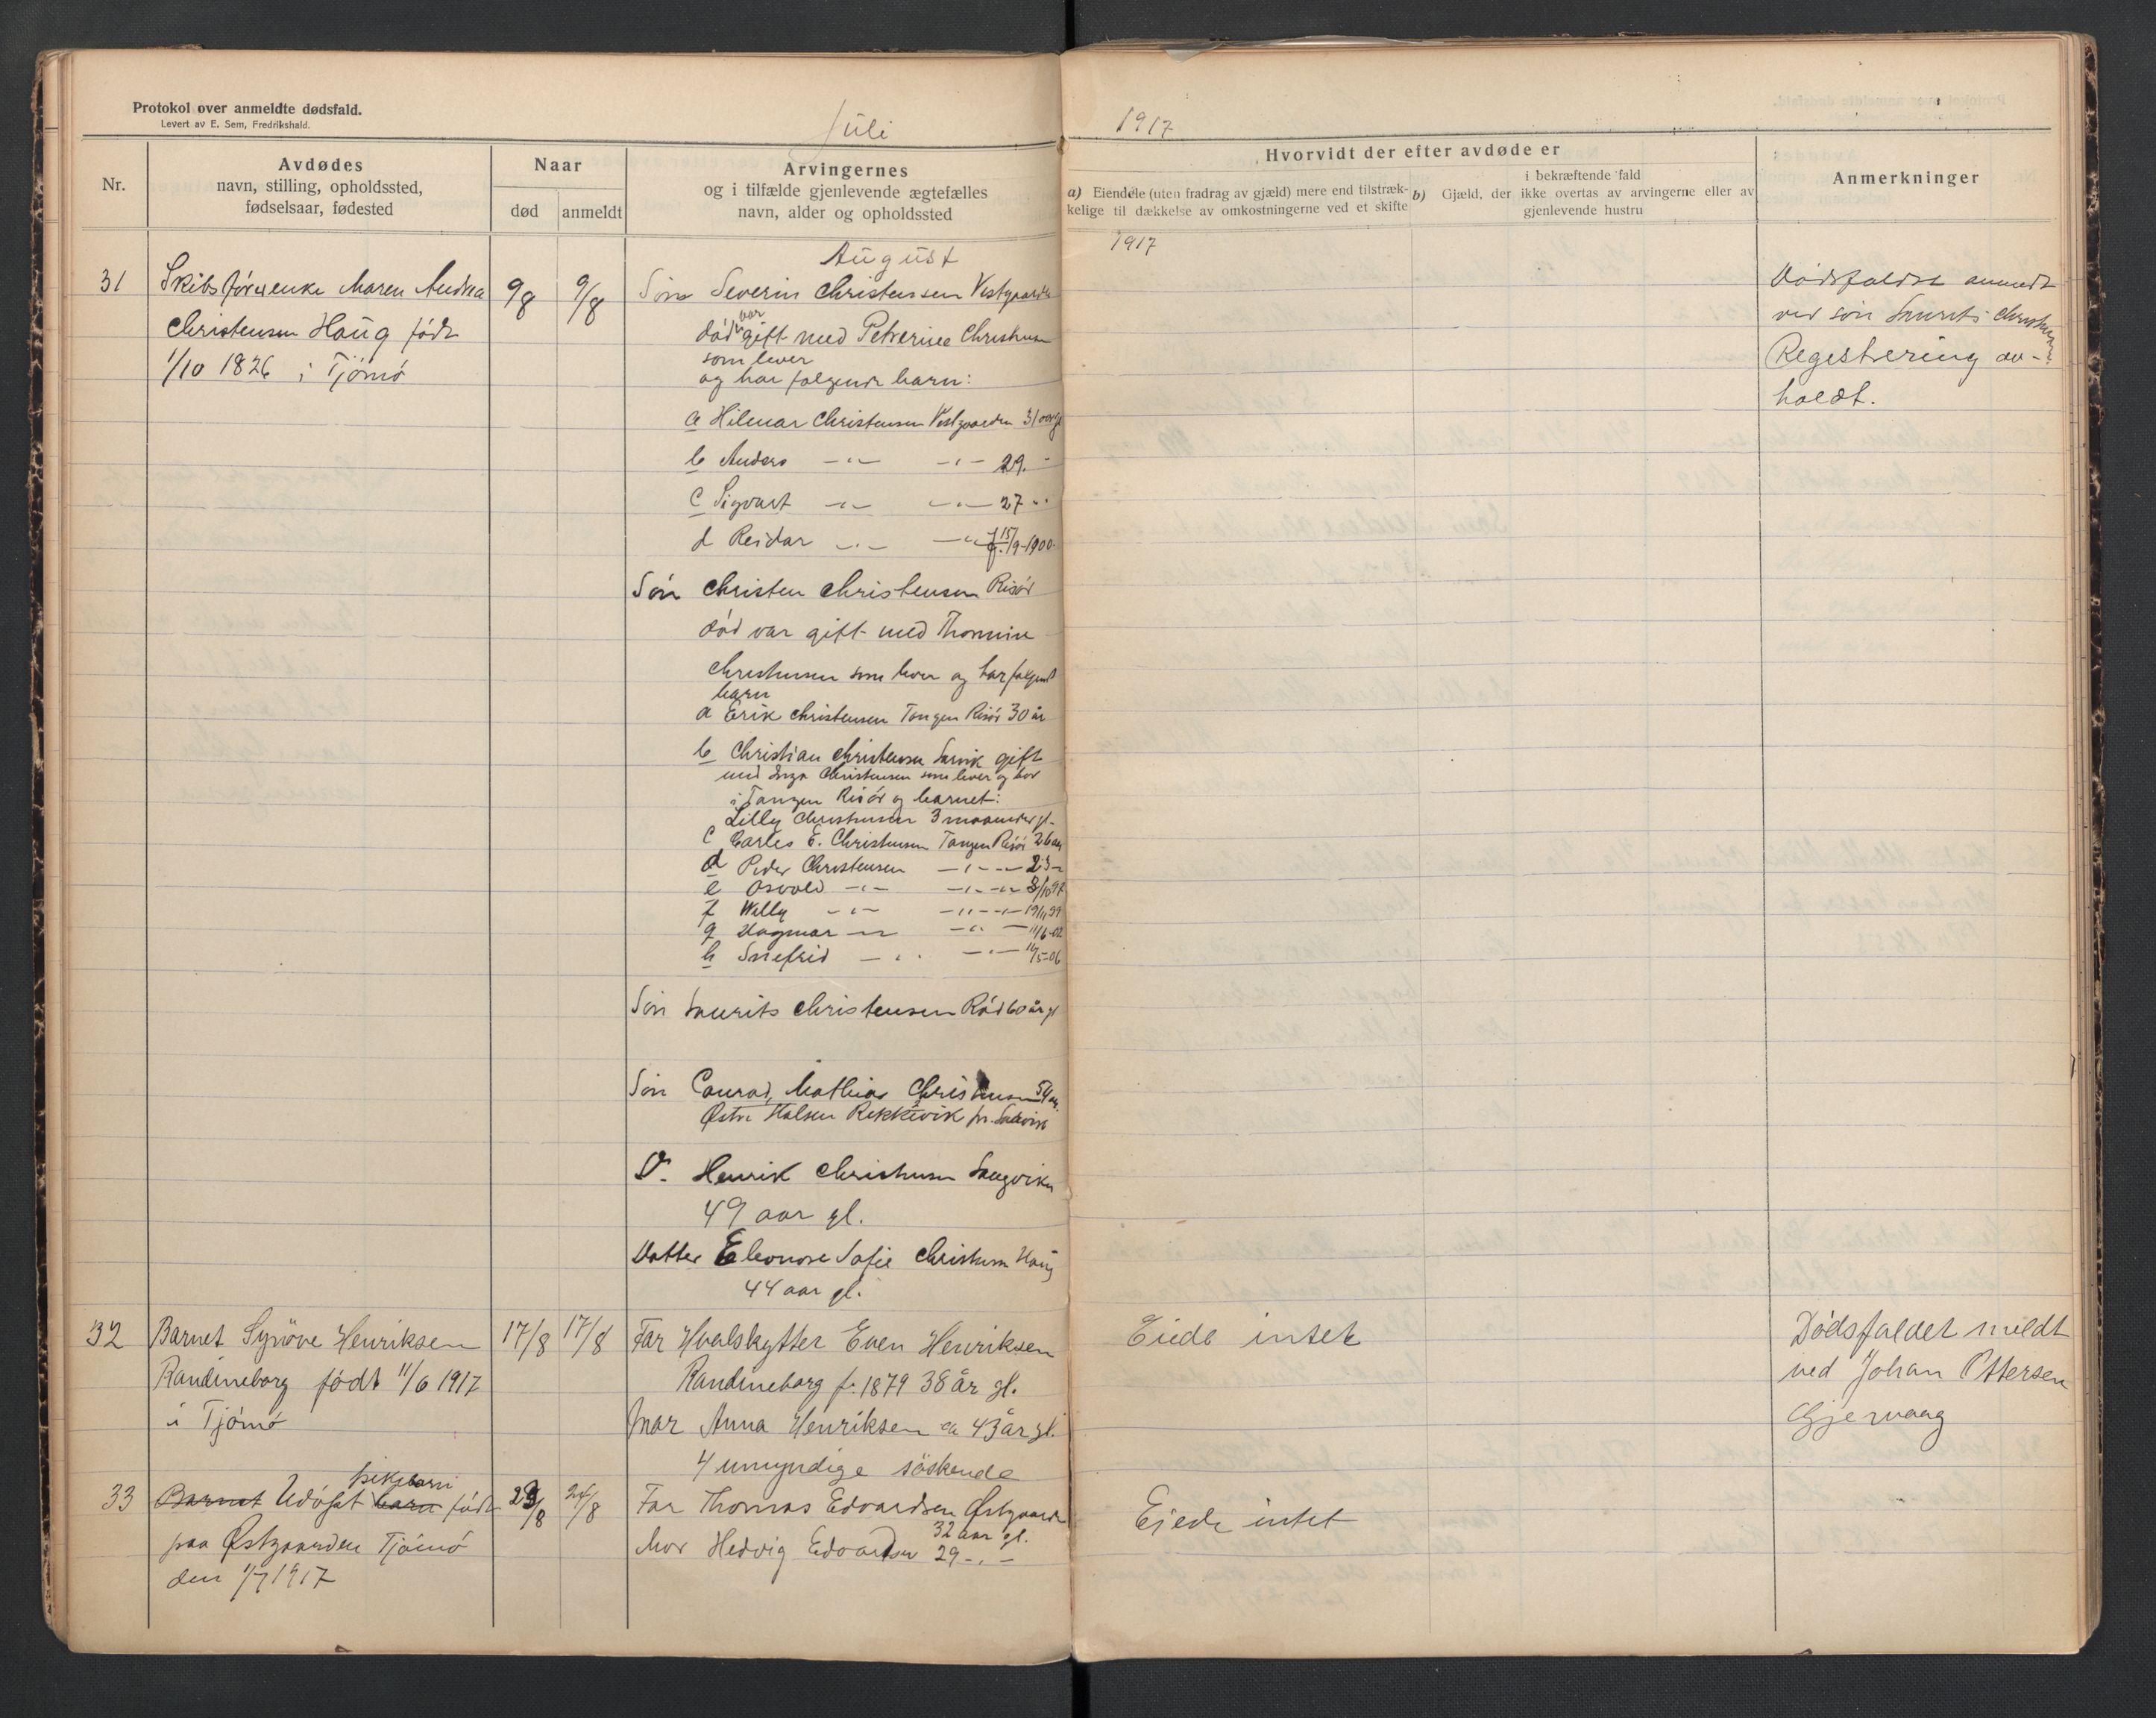 Protokol over anmeldte dødsfald.
Levert av E. Sem, Fredrikshald.
Juli
1917
Nr.
Avdødes
navn, stilling, opholdssted,
fødselsaar, fødested
Naar
død
anmeldt
Arvingernes
og i tilfælde gjenlevende ægtefælles
navn, alder og opholdssted
Hvorvidt der efter avdøde er
a) Eiendele (uten fradrag av gjæld) mere end tilstræk-
kelige til dækkelse av omkostningerne ved et skifte
i bekræftende fald
b) Gjæld, der ikke overtas av arvingerne eller av
gjenlevende hustru
Anmerkninger
August
1917
31
Skibsførerenke Maren Andrea
Christensen Haug født
1/10 1826 i Tjömö
9/8
9/8
Søn Severin Christensen Vestgaarden
var
död gift med Petverisea Christensen
som lever
og har følgende barn:
a Hilmar Christensen Vestgaarden 31 aar gl
b Anders -"- -"- 29. -
c Sigvart -"- -"- 27 -"
d Reidar -"- -"- f. 15/9-1900
Sön Christen Christensen Risör
död var gift med Thomine
Christensen som lever og har følgende
barn
a Erik Christensen Tangen Risör 30 år
b Christian Christensen Larvik gift
med Inga Christensen som lever og bor
i Tangen Risör og barnet:
Lilly Christensen 3 maaneder gl.
c Carles E. Christensen Tangen Risör 26 aar
d Peder Christensen -"- -"- 23 -
e Osvald -"- -"- -"- 8/10 97
f Willy -"- -"- -"- 19/11 99
g Dagmar -"- -"- 11/6-02
h Snefrid -"- -"- 16/5-06
Sön Laurits Christensen Röd 60 år gl
Sön Conrad, Mathias Christensen 54 aar.
Østre Halsen Rekkevik pr. Larvik
D. Henrik Christensen Langviken
49 aar gl.
Datter Eleonore Sofie Christensen Haug
44 aar gl.
Dödsfaldet anmeldt
ved sön Laurits Christensen
Registrering av-
holdt.
32
Barnet Synöve Henriksen
Randineborg födt 11/6 1917
i Tjömö
17/8
17/8
Far Hvalskytter Even Henriksen
Randineborg f. 1879 38 år gl.
Mor Anna Henriksen ca 43 år gl.
4 umyndige söskende
Eiede intet
Dödsfaldet meldt
ved Johan Ottersen
Gjervaag
33
pikebarn
Barnet Udöpt barn född
paa Østgaarden Tjömö
den 1/7 1917
23/8
24/8
Far Thomas Edvardsen Østgaarden
32 aar gl.
Mor Hedvig Edvardsen 29 -"-
Eiede intet